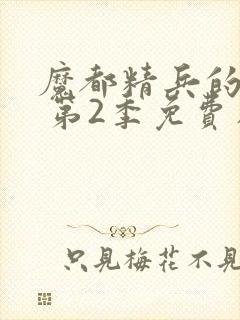 魔都精兵的
第2季免費
只見梅花不見